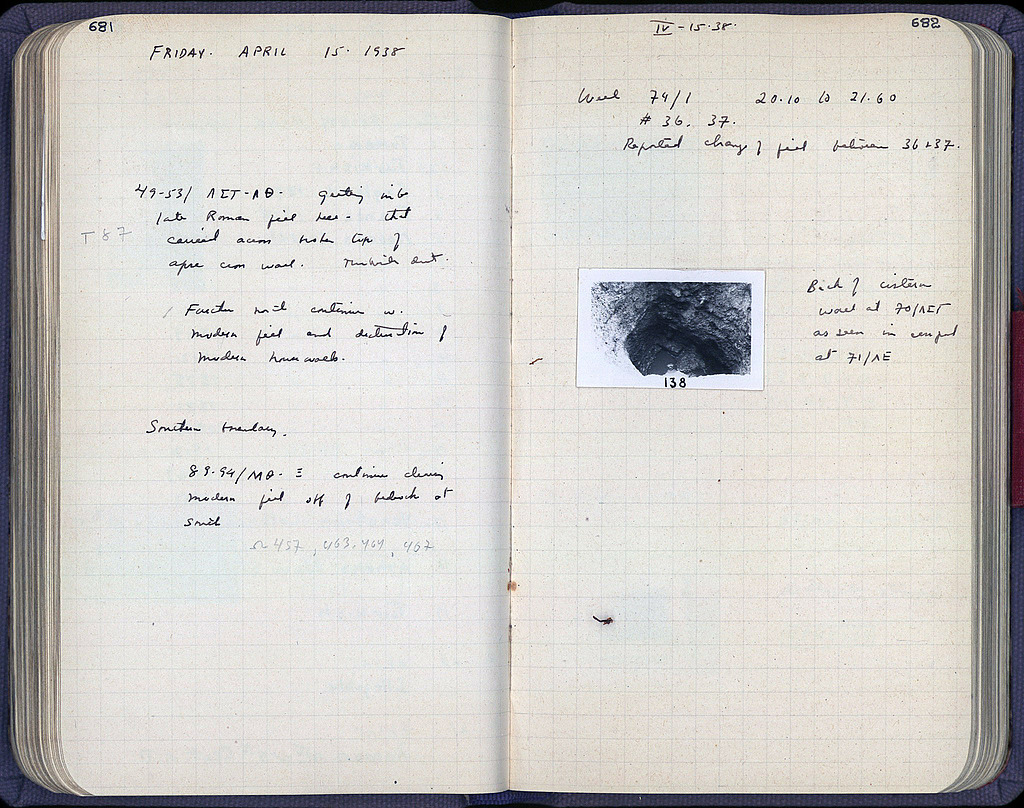 681
FRIDAY. APRIL 15. 1938
49-53/ ΛΣΤ-ΛΘ. getting into
late Roman fill here - that
carried across broken top of
apse cross wall.
T 87
Further north continue w.
modern fill and destruction of
modern house walls.
Southern boundary.
89-94/ΜΘ-Ξ continue clearing
modern fill off of bedrock at
South
Ω 457, 463, 464, 467
682
IV-15-38.
Well 74/Λ 20.10 to 21.60
# 36. 37.
Reported change of fill between 36 + 37.
138
Back of cistern
wall at 70/ΛΣΤ
as seen in
at 71/ΛΕ